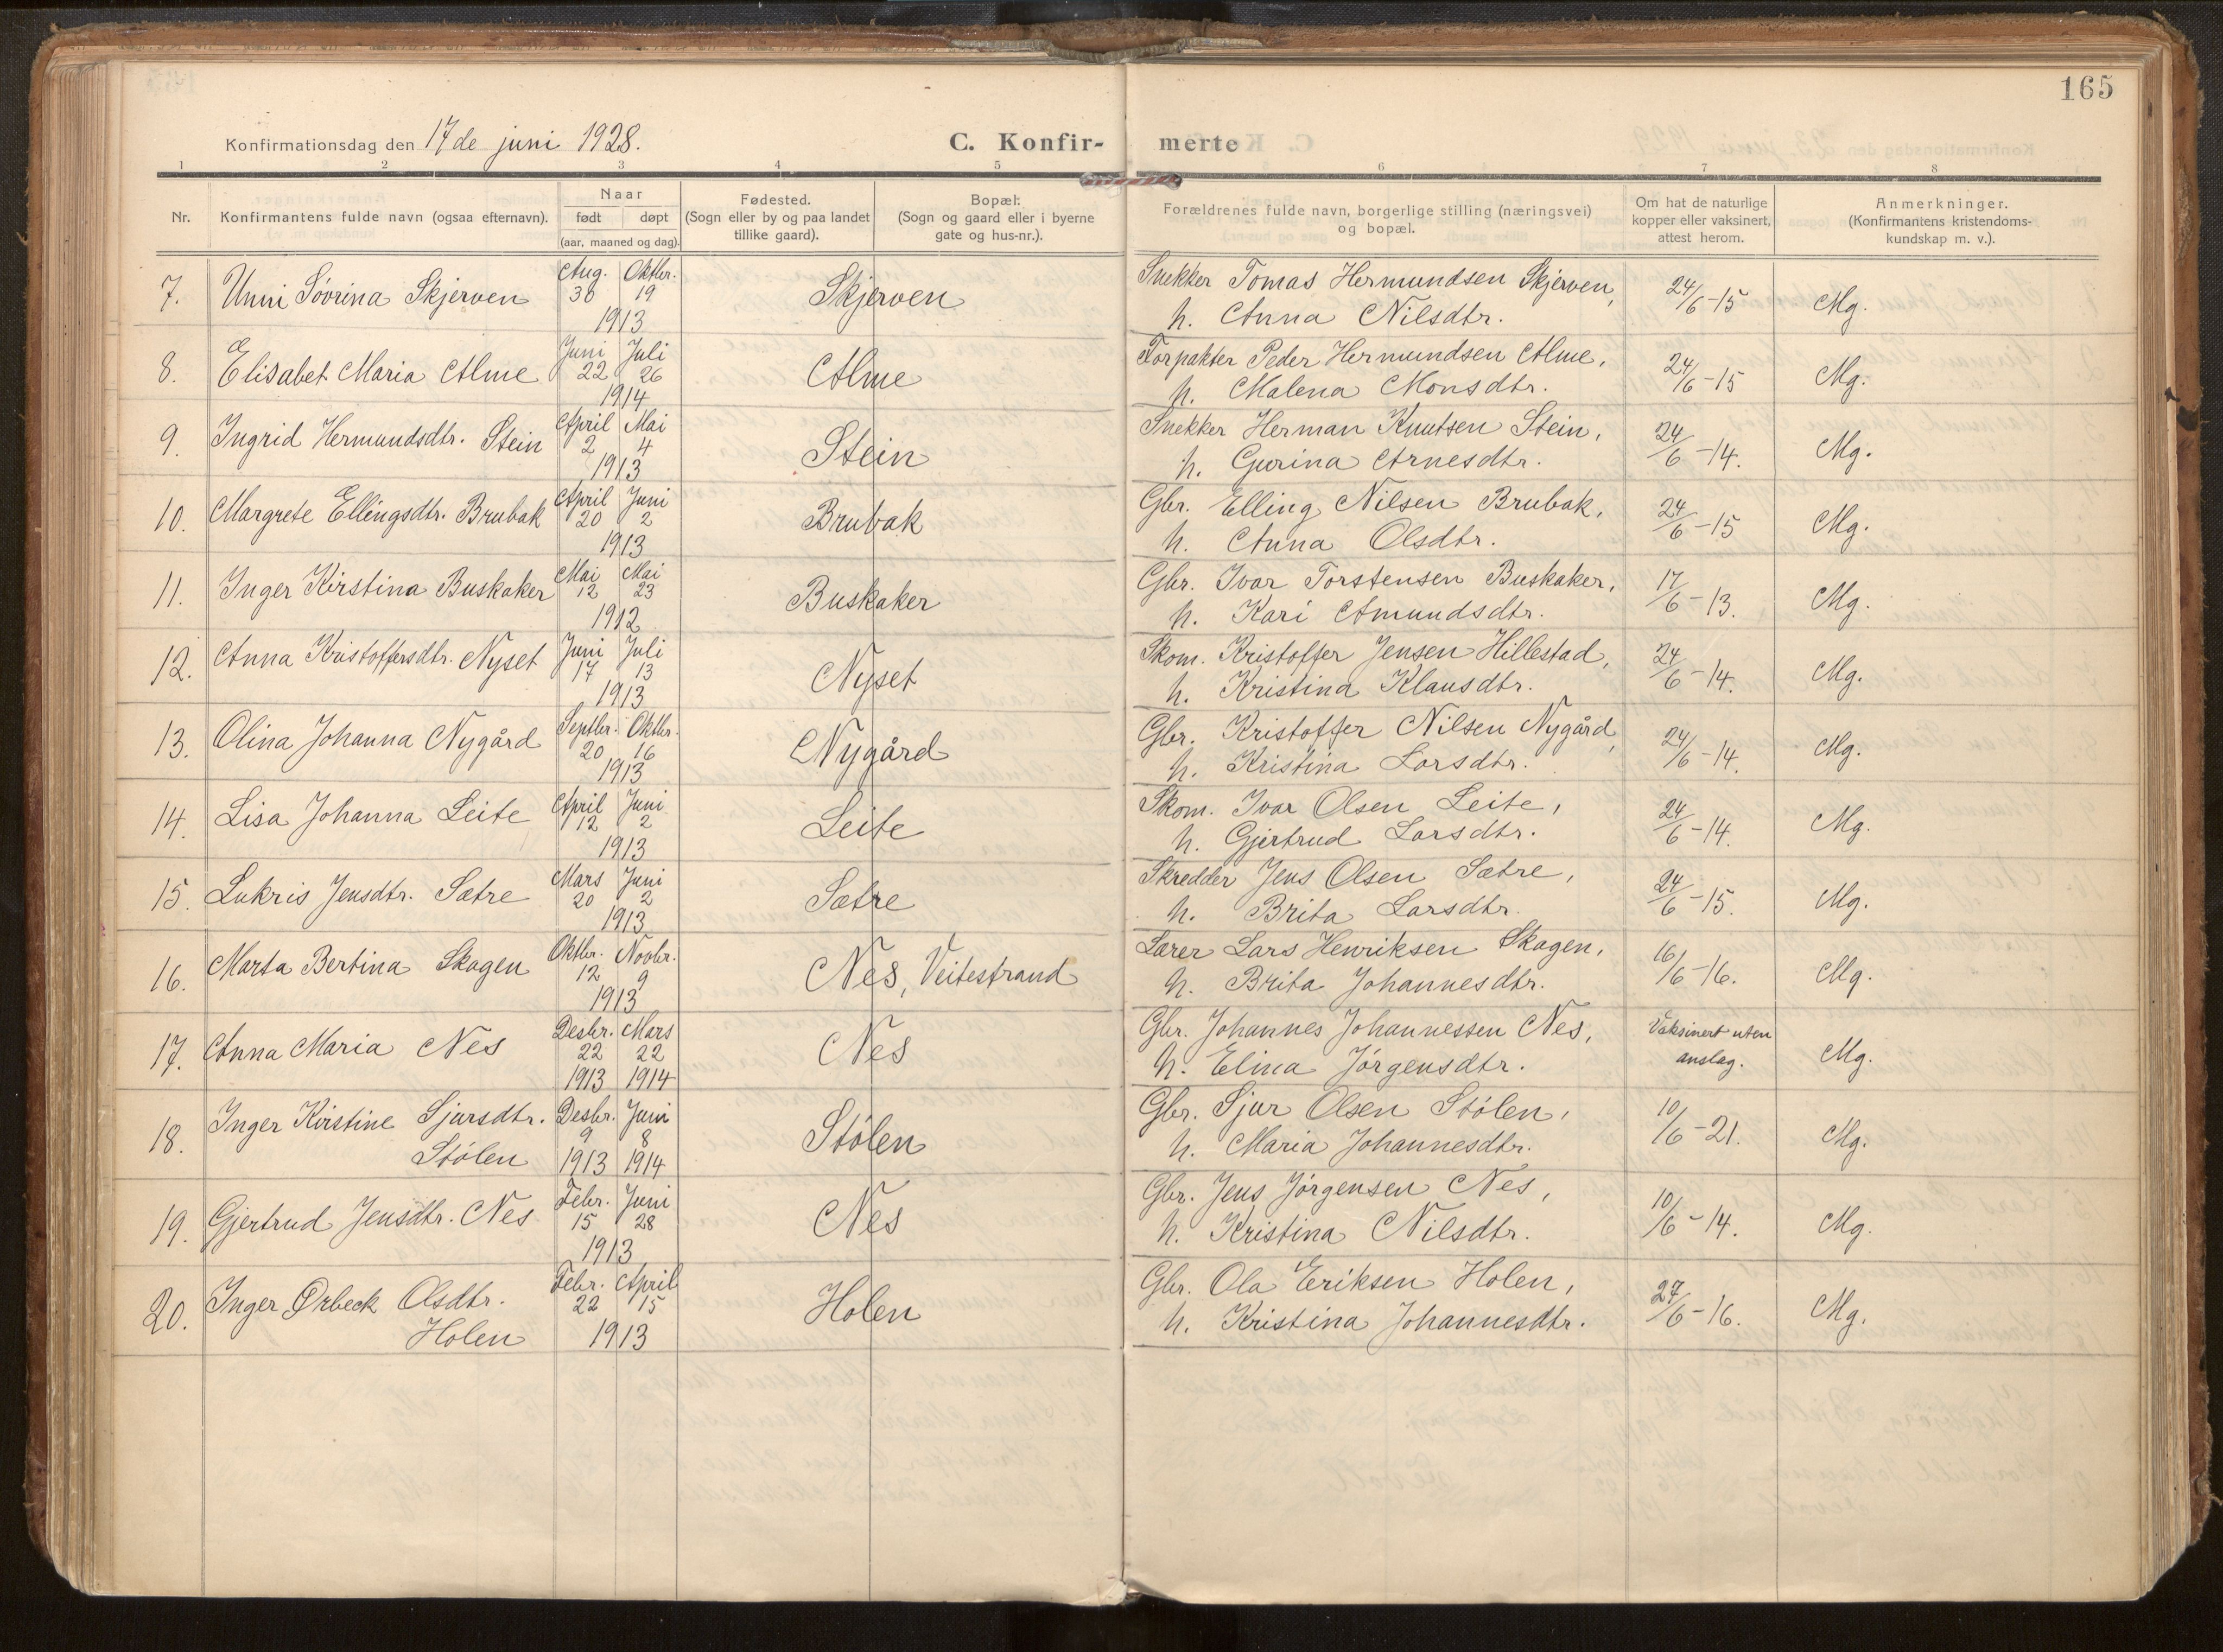 165
Konfirmationsdag den 17de juni 1928.
C. Konfir- merte
1 2 3 4 5 6 7 8
Nr.
Konfirmantens fulde navn (ogsaa efternavn).
Naar
født døpt
(aar, maaned og dag).
Fødested.
(Sogn eller by og paa landet
tillike gaard).
Bopæl:
(Sogn og gaard eller i byerne
gate og hus-nr.).
Forældrenes fulde navn, borgerlige stilling (næringsvei)
og bopæl.
Om hat de naturlige
kopper eller vaksinert,
attest herom.
Anmerkninger.
(Konfirmantens kristendoms-
kundskap m. v.).
7. Unni Søvrina Skjerven Aug. 30 Oktbr. 19 1913 Skjerven Snekker Tomas Hermundsen Skjerven, 24/6-15 Mg.
h. Anna Nilsdtr.
8. Elisabet Maria Alme Juni 22 Juli 26 1914 Alme Forpakter Peder Hermundsen Alme, 24/6-15 Mg.
h. Malena Monsdtr.
9. Ingrid Hermundsdtr. Stein April 2 Mai 4 1913 Stein Snekker Herman Knutsen Stein, 24/6-14. Mg.
h. Gurina Arnesdtr.
10. Margrete Ellingsdtr. Brubak April 20 Juni 2 1913 Brubak Gbr. Elling Nilsen Brubak, 24/6-15 Mg.
h. Anna Olsdtr.
11. Inger Kirstina Buskaker Mai 12 Mai 23 1912 Buskaker Gbr. Ivar Torstensen Buskaker, 17/6-13. Mg.
h. Kari Amundsdtr.
12. Anna Kristoffersdtr. Nyset Juni 17 Juli 13 1913 Nyset Skom. Kristoffer Jensen Hillestad, 24/6-14. Mg.
h. Kristina Klausdtr.
13. Olina Johanna Nygård Septbr. 20 Oktbr. 16 1913 Nygård Gbr. Kristoffer Nilsen Nygård, 24/6-14. Mg.
h. Kristina Larsdtr.
14. Lisa Johanna Leite April 12 Juni 2 1913 Leite Skom. Ivar Olsen Leite, 24/6-14. Mg.
h. Gjertrud Larsdtr.
15. Lukris Jensdtr. Sætre Mars 20 Juni 2 1913 Sætre Skredder Jens Olsen Sætre, 24/6-15. Mg.
h. Brita Larsdtr.
16. Marta Bertina Skagen Oktbr. 12 Novbr. 9 1913 Nes, Veitestrand Lærer Lars Henriksen Skagen, 16/6-16. Mg.
h. Brita Johannesdtr.
17. Anna Maria Nes Desbr. 22 1913 Mars 22 1914 Nes Gbr. Johannes Johannessen Nes, Vaksinert uten anslag. Mg.
h. Elina Jørgensdtr.
18. Inger Kirstine Sjursdtr. Desbr. 9 1913 Juni 8 1914 Stølen Gbr. Sjur Olsen Stølen, 10/6-21. Mg.
Stølen h. Maria Johannesdtr.
19. Gjertrud Jensdtr. Nes Febr. 15 Juni 28 1913 Nes Gbr. Jens Jørgensen Nes, 10/6-14. Mg.
h. Kristina Nilsdtr.
20. Inger Ørbeck Olsdtr. Febr. 22 April 15 1913 Holen Gbr. Ola Eriksen Holen, 27/6-16. Mg.
Holen h. Kristina Johannesdtr.